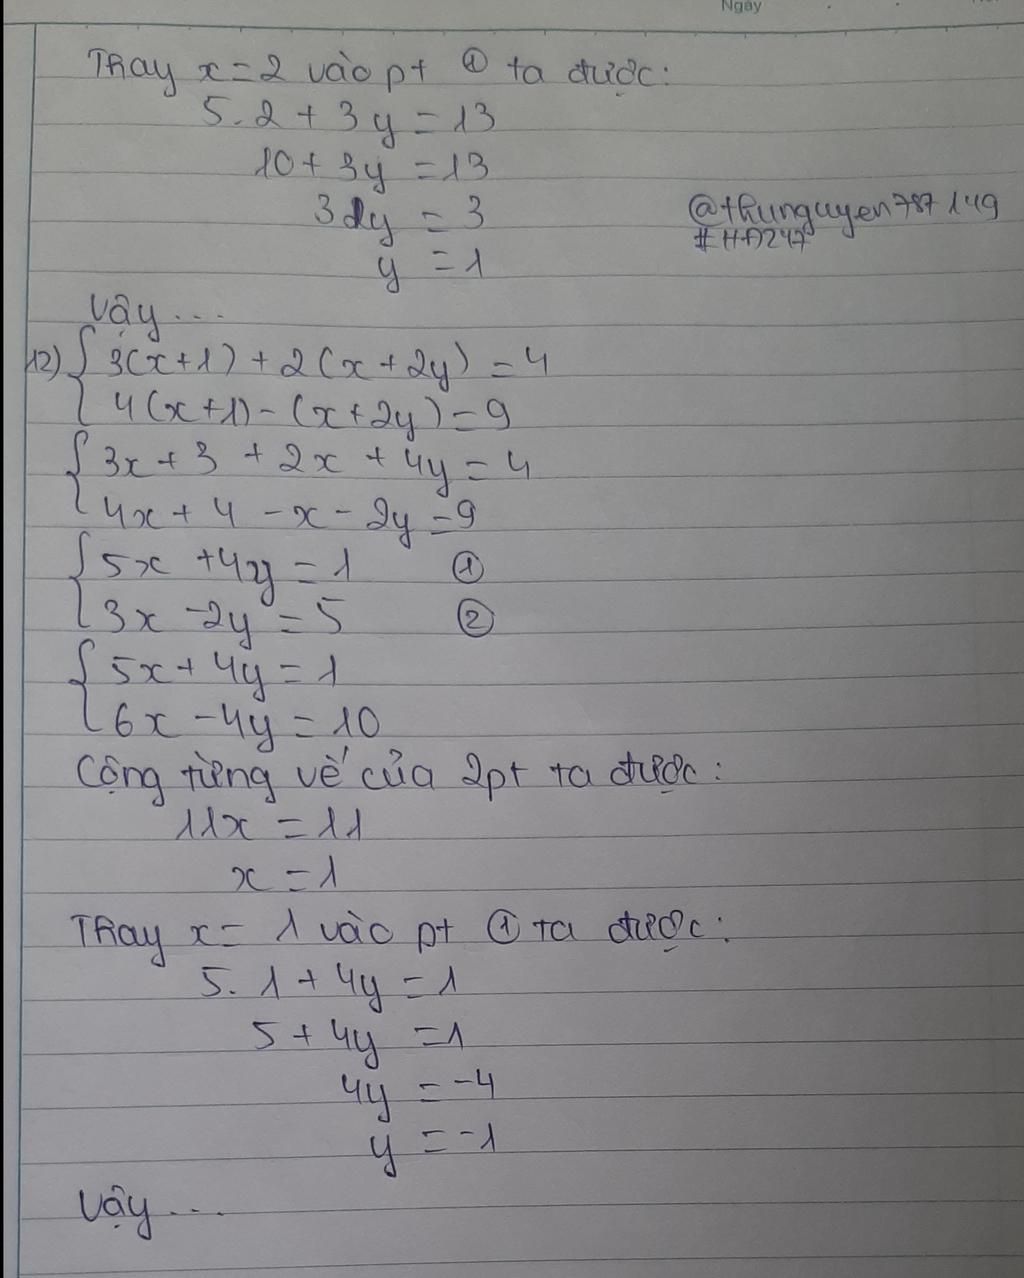 Ngày
Thay x = 2 vào pt ① ta được:
5. 2 + 3y = 13
10 + 3y = 13
3y = 3
@thunguyen787149
#HĐ247
y = 1
Vậy ...
12) { 3(x+1) + 2(x + 2y) = 4
4(x+1) - (x + 2y) = 9
{ 3x + 3 + 2x + 4y = 4
4x + 4 - x - 2y = 9
{ 5x + 4y = 1 ①
3x - 2y = 5 ②
{ 5x + 4y = 1
6x - 4y = 10
Cộng từng vế của 2pt ta được:
11x = 11
x = 1
Thay x = 1 vào pt ① ta được:
5. 1 + 4y = 1
5 + 4y = 1
4y = -4
y = -1
Vậy ...